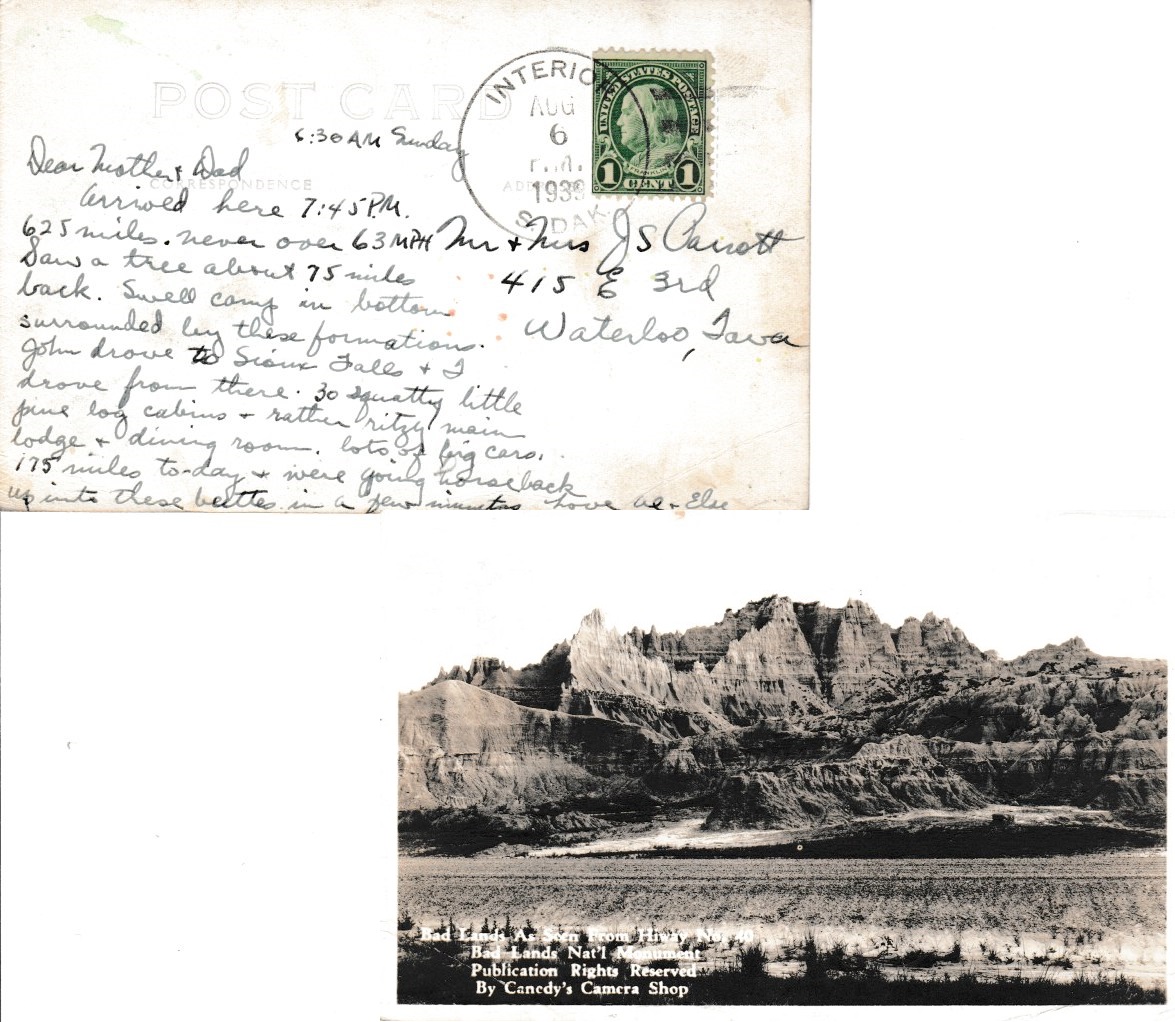 POST CARD
INTERIOR
AUG
6
P.M.
1939
S. DAK.
UNITED STATES POSTAGE
FRANKLIN
1 CENT 1
CORRESPONDENCE
6:30 AM Sunday
Dear Mother & Dad
Arrived here 7:45 P.M.
625 miles. never over 63 MPH
Saw a tree about 75 miles
back. Swell camp in bottom
surrounded by these formations.
John drove to Sioux Falls & I
drove from there. 30 squatty little
pine log cabins & rather ritzy main
lodge & dining room. lots of big cars.
175 miles to-day & were going horseback
up into these buttes in a few minutes Love Al & Else
Mr & Mrs JS Parrott
415 E 3rd
Waterloo, Iowa
Bad Lands As Seen From Hiway No. 40
Bad Lands Nat'l Monument
Publication Rights Reserved
By Canedy's Camera Shop